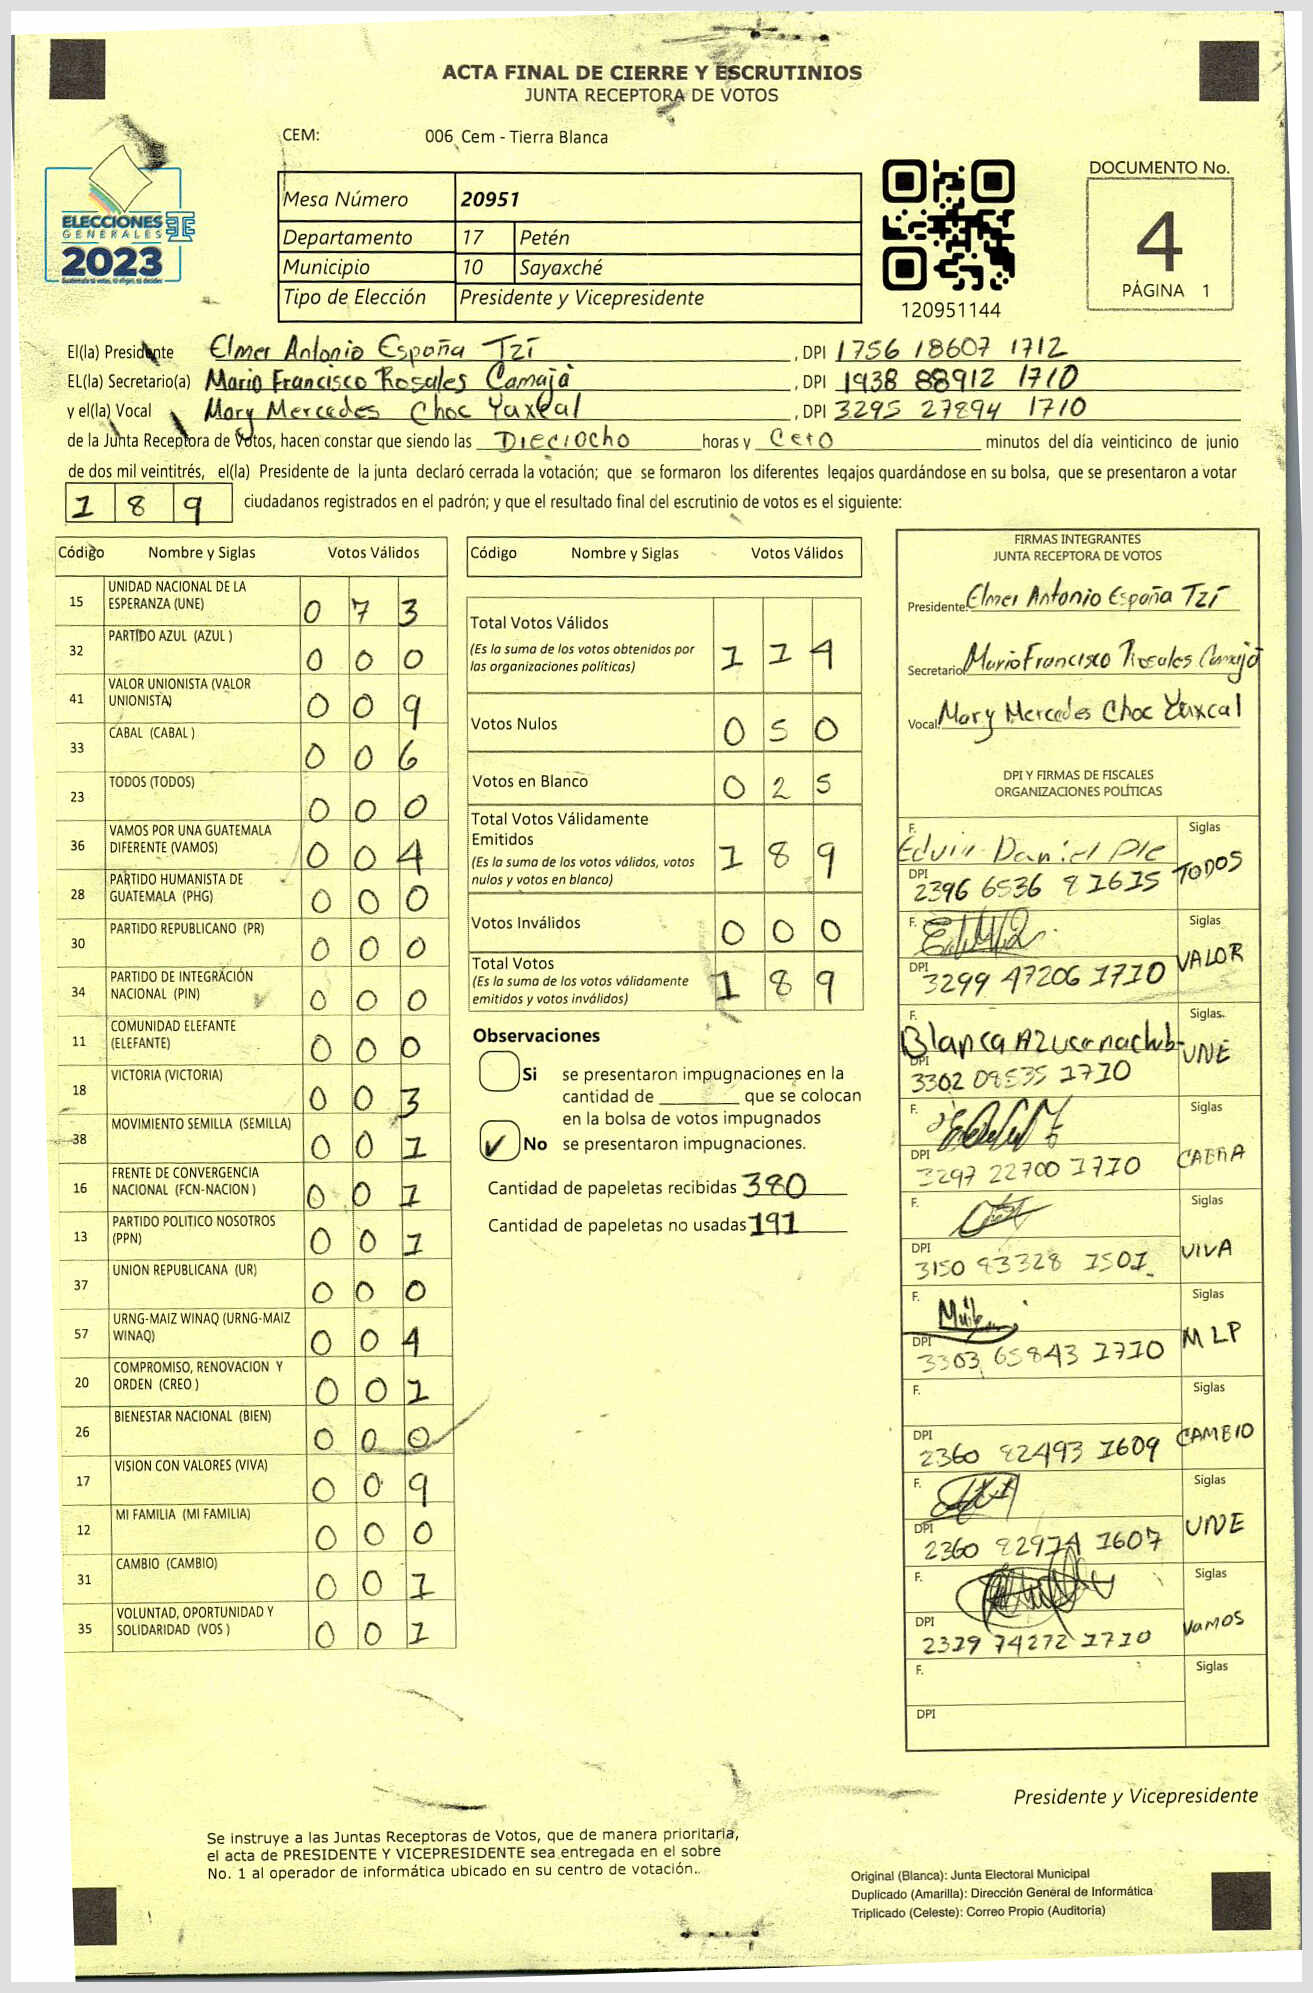 ACTA FINAL DE CIERRE Y ESCRUTINIOS
JUNTA RECEPTORA DE VOTOS
CEM: 006 Cem - Tierra Blanca
ELECCIONES
GENERALES
TSE
2023
Mesa Número 20951
Departamento 17 Petén
Municipio 10 Sayaxché
Tipo de Elección Presidente y Vicepresidente
120951144
DOCUMENTO No.
4
PÁGINA 1
El(la) Presidente Elmer Antonio España Tzí, DPI 1756 18607 1712
EL(la) Secretario(a) Mario Francisco Rosales Camajá, DPI 1938 88912 1710
y el(la) Vocal Mary Mercedes Choc Yaxcal, DPI 3295 27894 1710
de la Junta Receptora de Votos, hacen constar que siendo las Dieciocho horas y Cero minutos del día veinticinco de junio
de dos mil veintitrés, el(la) Presidente de la junta declaró cerrada la votación; que se formaron los diferentes legajos quardándose en su bolsa, que se presentaron a votar
189 ciudadanos registrados en el padrón; y que el resultado final del escrutinio de votos es el siguiente:
Código Nombre y Siglas Votos Válidos
15 UNIDAD NACIONAL DE LA ESPERANZA (UNE) 073
32 PARTIDO AZUL (AZUL ) 000
41 VALOR UNIONISTA (VALOR UNIONISTA) 009
33 CABAL (CABAL ) 006
23 TODOS (TODOS) 000
36 VAMOS POR UNA GUATEMALA DIFERENTE (VAMOS) 004
28 PARTIDO HUMANISTA DE GUATEMALA (PHG) 000
30 PARTIDO REPUBLICANO (PR) 000
34 PARTIDO DE INTEGRACIÓN NACIONAL (PIN) 000
11 COMUNIDAD ELEFANTE (ELEFANTE) 000
18 VICTORIA (VICTORIA) 003
38 MOVIMIENTO SEMILLA (SEMILLA) 001
16 FRENTE DE CONVERGENCIA NACIONAL (FCN-NACION ) 001
13 PARTIDO POLITICO NOSOTROS (PPN) 001
37 UNION REPUBLICANA (UR) 000
57 URNG-MAIZ WINAQ (URNG-MAIZ WINAQ) 004
20 COMPROMISO, RENOVACION Y ORDEN (CREO ) 001
26 BIENESTAR NACIONAL (BIEN) 000
17 VISION CON VALORES (VIVA) 009
12 MI FAMILIA (MI FAMILIA) 000
31 CAMBIO (CAMBIO) 001
35 VOLUNTAD, OPORTUNIDAD Y SOLIDARIDAD (VOS ) 001
Código Nombre y Siglas Votos Válidos
Total Votos Válidos 114
(Es la suma de los votos obtenidos por
las organizaciones políticas)
Votos Nulos 050
Votos en Blanco 025
Total Votos Válidamente
Emitidos 189
(Es la suma de los votos válidos, votos
nulos y votos en blanco)
Votos Inválidos 000
Total Votos 189
(Es la suma de los votos válidamente
emitidos y votos inválidos)
Observaciones
Si se presentaron impugnaciones en la
cantidad de ________ que se colocan
en la bolsa de votos impugnados
✓ No se presentaron impugnaciones.
Cantidad de papeletas recibidas 380
Cantidad de papeletas no usadas 191
FIRMAS INTEGRANTES
JUNTA RECEPTORA DE VOTOS
Presidente: Elmer Antonio España Tzí
Secretario Mario Francisco Rosales Camajá
Vocal Mary Mercedes Choc Yaxcal
DPI Y FIRMAS DE FISCALES
ORGANIZACIONES POLÍTICAS
F. Edvin Daniel Siglas
DPI 2396 6536 81615 TODOS
F. Siglas
DPI 3299 47206 1710 VALOR
F. Blanca Azucena Siglas
DPI 3302 08535 1710 UNE
F. Siglas
DPI 3297 22700 1710
F. Siglas
DPI 3150 83328 1501 VIVA
F. Siglas
DPI 3303 65843 1710 MLP
F. Siglas
DPI 2360 82493 1609 CAMBIO
F. Siglas
DPI 2360 82974 1607 UNE
F. Siglas
DPI 2319 74272 1710 VAMOS
F. Siglas
DPI
Presidente y Vicepresidente
Se instruye a las Juntas Receptoras de Votos, que de manera prioritaria,
el acta de PRESIDENTE Y VICEPRESIDENTE sea entregada en el sobre
No. 1 al operador de informática ubicado en su centro de votación.
Original (Blanca): Junta Electoral Municipal
Duplicado (Amarilla): Dirección General de Informática
Triplicado (Celeste): Correo Propio (Auditoria)